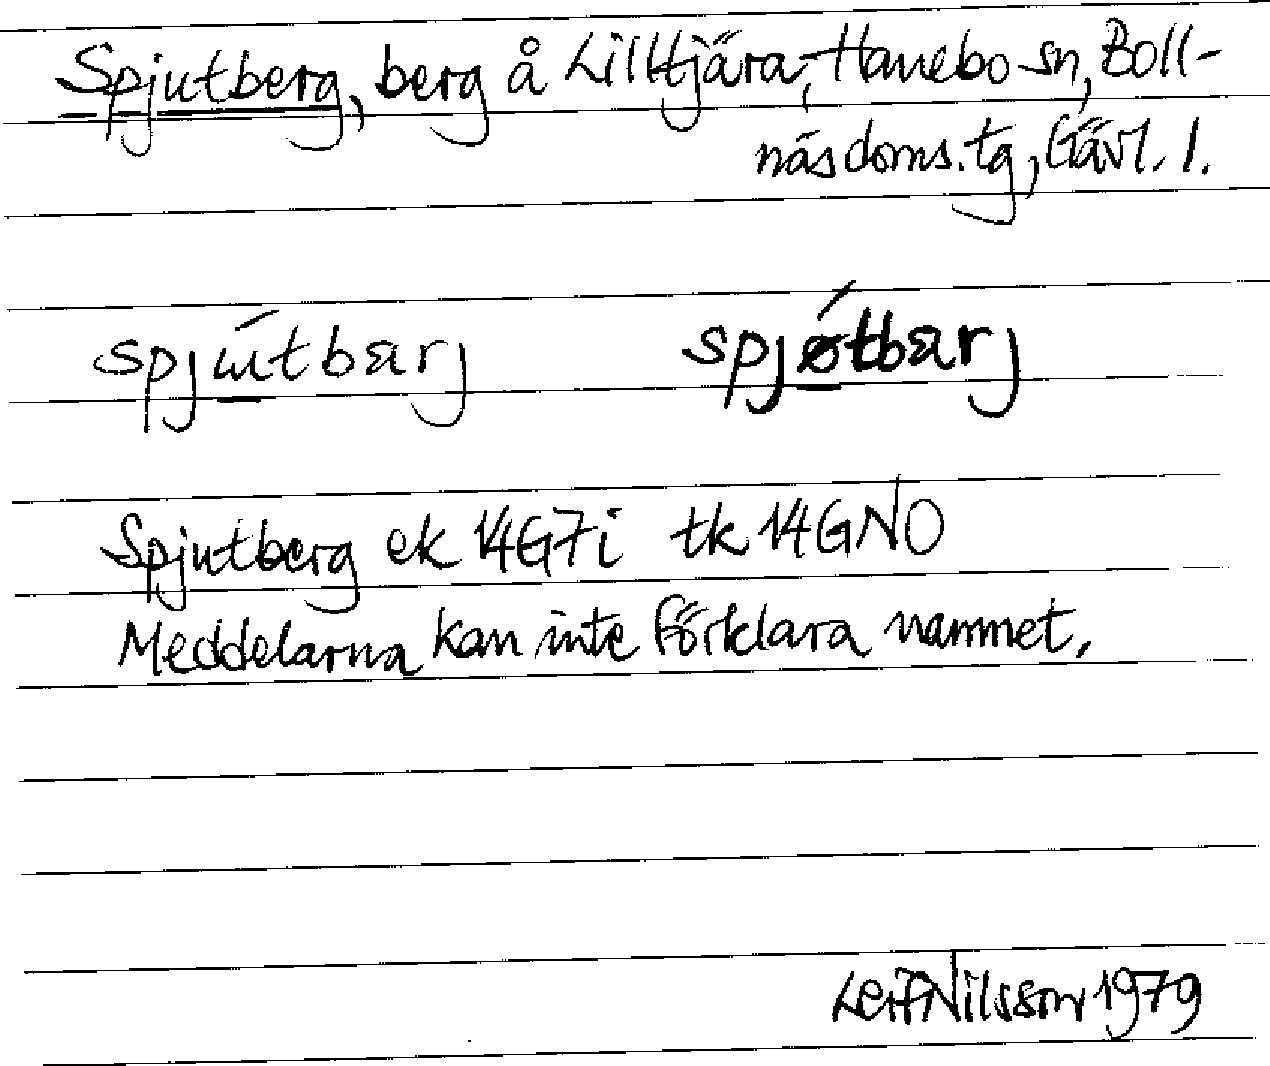 Spjutberg, berg å Lilltjära, Hanebo sn, Boll-
näs doms. tg, Gävl. l.
spjɯ́tbærj spjǿtbærj
Spjutberg ek 14G7i tk 14GNO
Meddelarna kan inte förklara namnet.
Leif Nilsson 1979